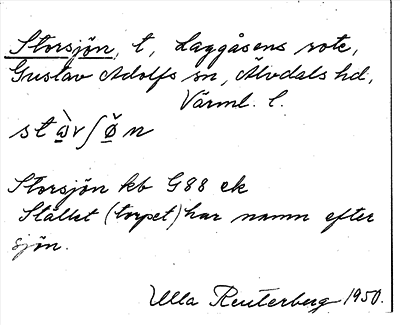 Storsjön, t, Laggåsens rote,
Gustav Adolfs sn, Älvdals hd,
Värml. l.
Storsjön kb G88 ek
Stället (torpet) har namn efter
sjön.
Ulla Reuterberg 1950.